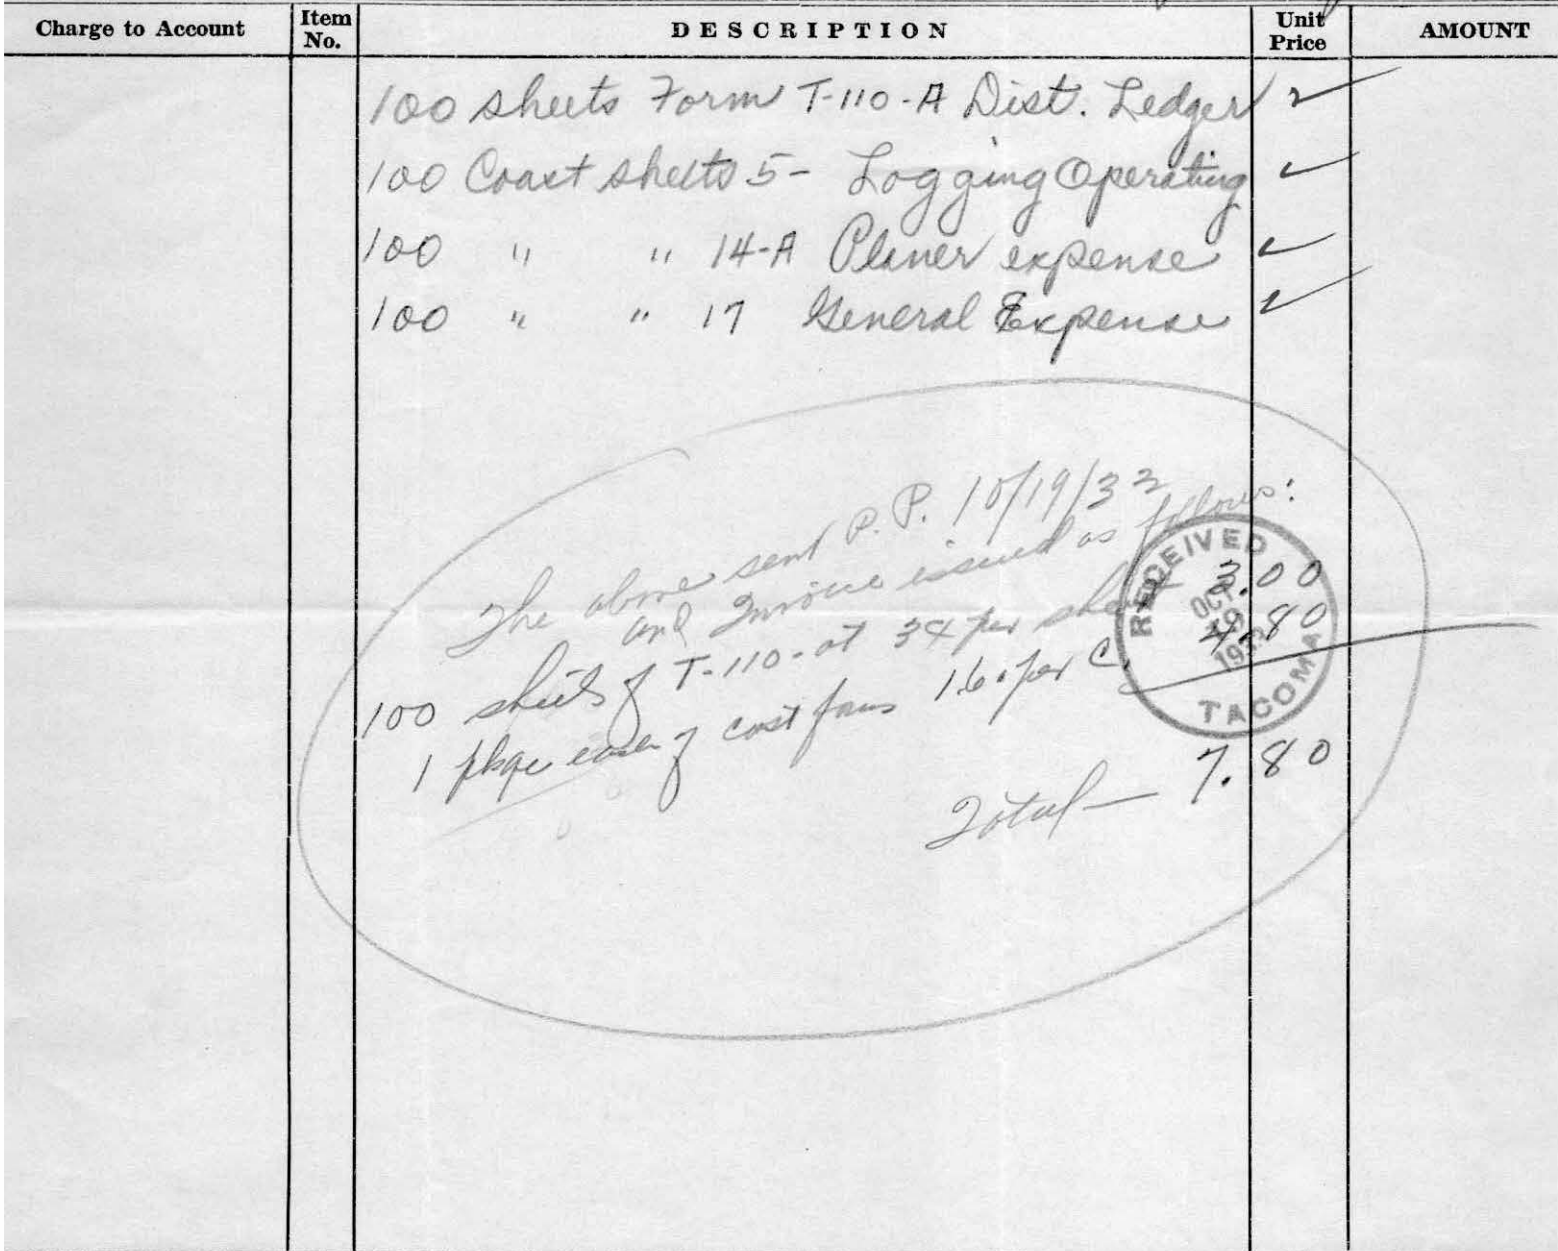 Charge to Account Item No. DESCRIPTION Unit Price AMOUNT
100 sheets Form T-110-A Dist. Ledger
100 Coast sheets 5- Logging Operating
100 " " 14-A Planer expense
100 " " 17 General Expense
The above sent P.P. 10/19/32
and Invoice issued as follows:
100 sheets of T-110-at 3¢ per sheet 3.00
1 pkge each of cost forms 1.60 per C. 4.80
Total — 7.80
RECEIVED
OCT
19
1932
TACOMA